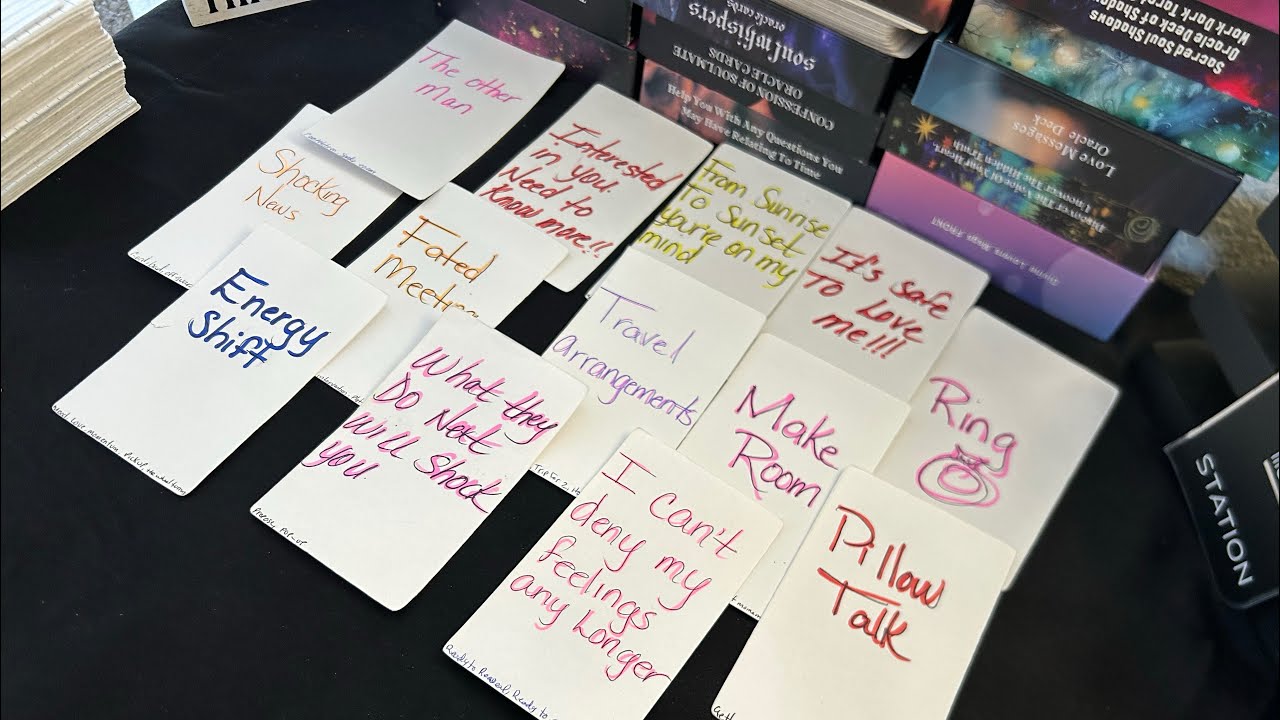 The other
Man
Shocking
News
Interested
in you.
Need to
Know more!!
From Sunrise
To Sunset
you're on my
mind
It's safe
To Love
me!!!
Fated
Meeting
Energy
Shift
Travel
Arrangements
Trip For 2,
Make
Room
Ring
What they
Do Next
will shock
you.
Propose, Pop-up
I can't
deny my
feelings
any Longer
Ready to Reveal, Ready to
Pillow
Talk
soulwhispers
oracle cards
CONFESSION OF SOULMATE
ORACLE CARDS
Help You With Any Questions You
May Have Relating To Time
Sacred Soul Shadows
Oracle Deck of Shadow
Work Dark Tarot
Love Messages
Oracle Deck
STATION